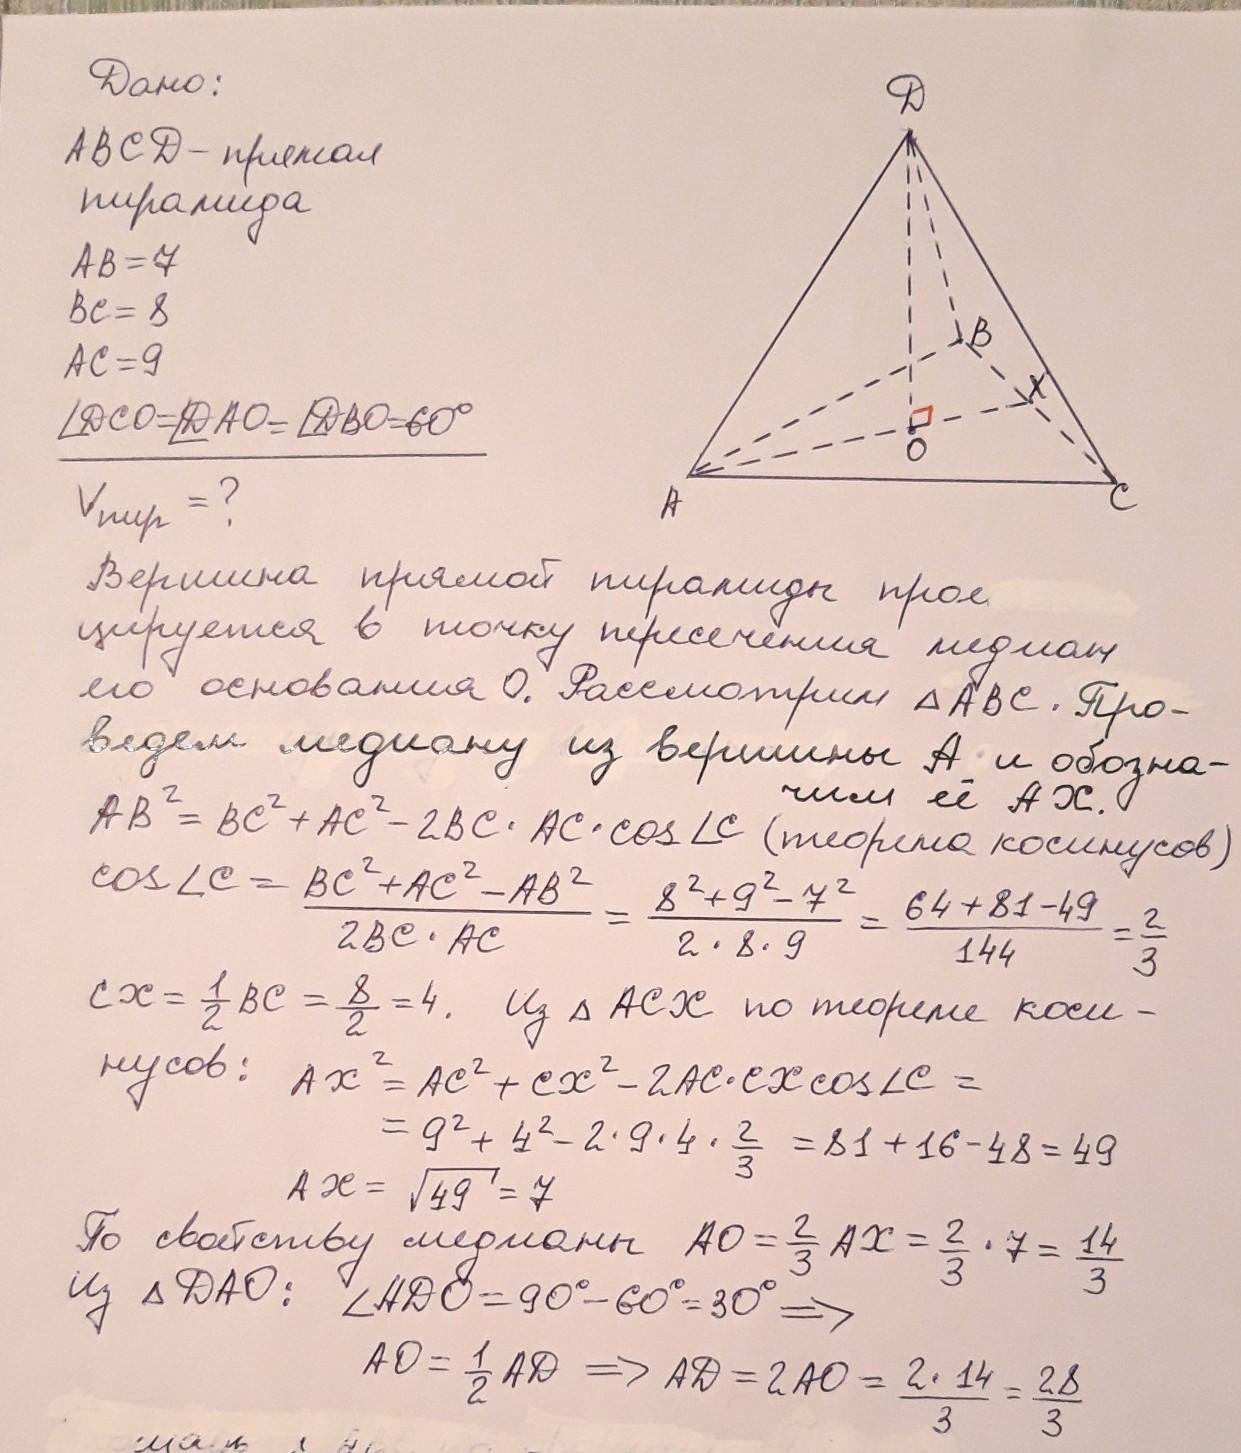 Дано:
Д
ABCД – прямая
пирамида
AB = 7
BC = 8
AC = 9
∠ДCO = ∠ДAO = ∠ДBO = 60°
B
X
O
A
C
Vпир = ?
Вершина прямой пирамиды прое
цируется в точку пересечения медиан
его основания O. Рассмотрим △ABC. Про-
ведем медиану из вершины A и обозна-
чим её AX.
AB² = BC² + AC² – 2BC · AC · cos∠C (теорема косинусов)
cos∠C = (BC² + AC² – AB²)/(2BC · AC) = (8² + 9² – 7²)/(2 · 8 · 9) = (64 + 81 – 49)/144 = 2/3
CX = 1/2 BC = 8/2 = 4. Из △ACX по теореме коси-
нусов: AX² = AC² + CX² – 2AC · CX cos∠C =
= 9² + 4² – 2 · 9 · 4 · 2/3 = 81 + 16 – 48 = 49
AX = √49 = 7
По свойству медианы AO = 2/3 AX = 2/3 · 7 = 14/3
Из △DAO: ∠ADO = 90° – 60° = 30° =>
AO = 1/2 AD => AD = 2AO = (2 · 14)/3 = 28/3